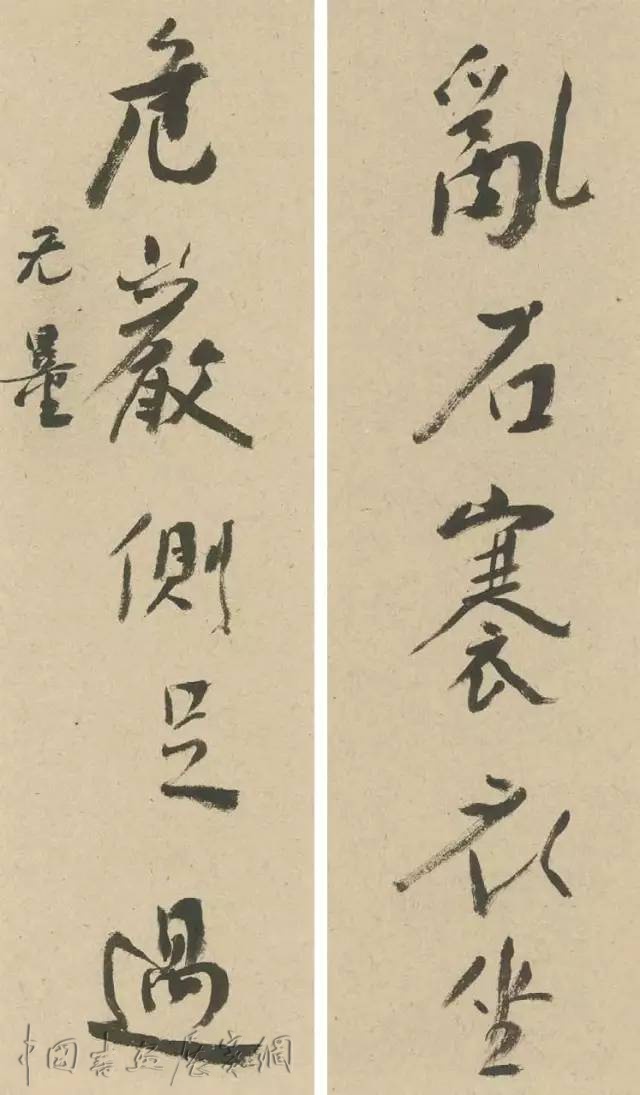 亂石褰衣坐
危巖側足過
无量
中國書画展寶網